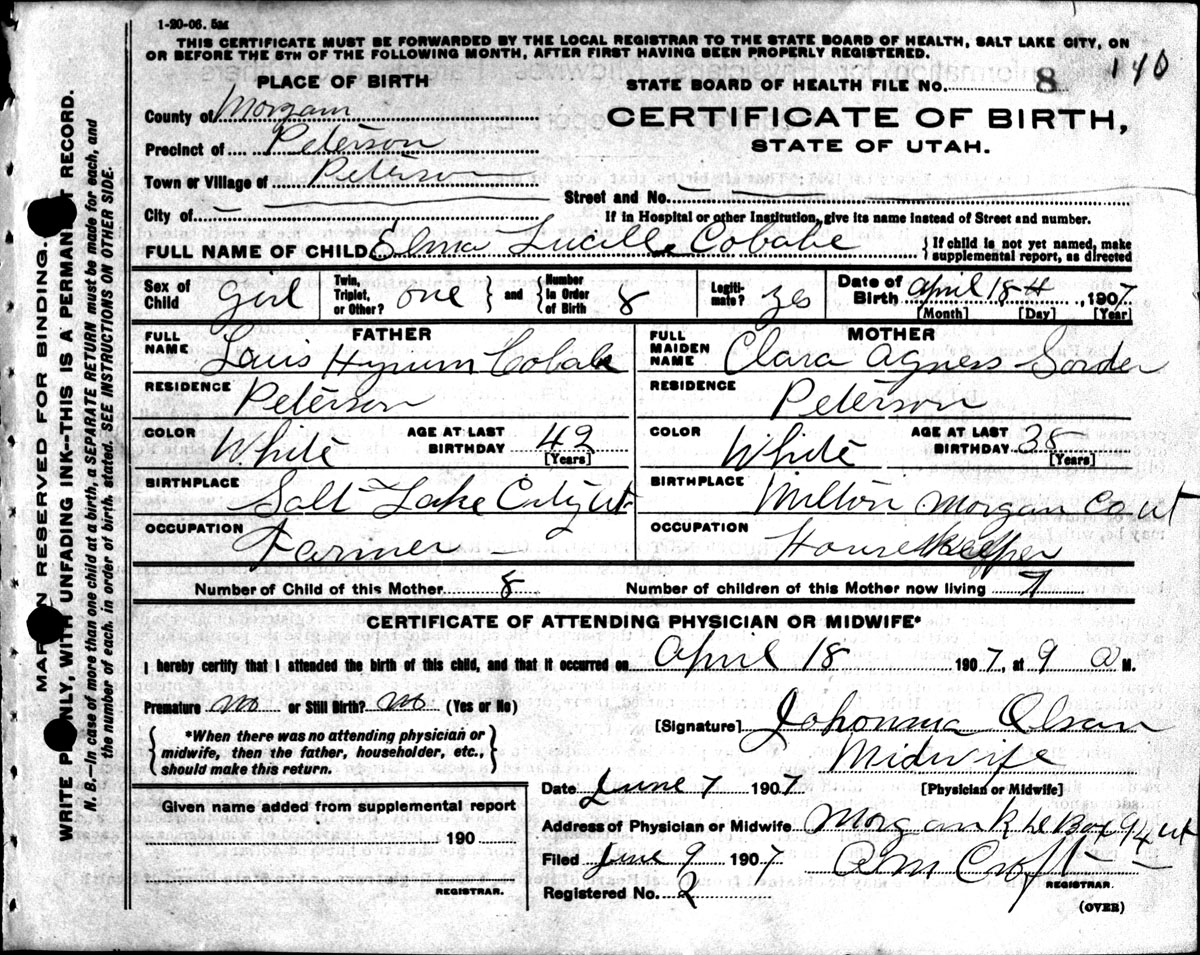 1-20-06. 5M
THIS CERTIFICATE MUST BE FORWARDED BY THE LOCAL REGISTRAR TO THE STATE BOARD OF HEALTH, SALT LAKE CITY, ON
OR BEFORE THE 5TH OF THE FOLLOWING MONTH, AFTER FIRST HAVING BEEN PROPERLY REGISTERED.
140
PLACE OF BIRTH
STATE BOARD OF HEALTH FILE NO. 8
County of Morgan
CERTIFICATE OF BIRTH,
Precinct of Peterson
STATE OF UTAH.
Town or Village of Peterson
Street and No. —
City of —
If in Hospital or other Institution, give its name instead of Street and number.
FULL NAME OF CHILD Elma Lucille Cobabe
{ If child is not yet named, make supplemental report, as directed
Sex of Child Girl Twin, Triplet, or Other? one } and { Number in Order of Birth 8 Legiti-mate? Yes Date of Birth April 18 1907
[Month] [Day] [Year]
FATHER
MOTHER
FULL NAME Louis Hyrum Cobabe
FULL MAIDEN NAME Clara Agness
RESIDENCE Peterson
RESIDENCE Peterson
COLOR White AGE AT LAST BIRTHDAY 42 [Years]
COLOR White AGE AT LAST BIRTHDAY 38 [Years]
BIRTHPLACE Salt Lake City Ut
BIRTHPLACE Milton Morgan Co Ut
OCCUPATION Farmer —
OCCUPATION HouseKeeper
Number of Child of this Mother 8
Number of children of this Mother now living 7
CERTIFICATE OF ATTENDING PHYSICIAN OR MIDWIFE*
I hereby certify that I attended the birth of this child, and that it occurred on April 18 1907, at 9 A M.
Premature no or Still Birth? no (Yes or No)
[Signature] Johonna Olsan
{ *When there was no attending physician or midwife, then the father, householder, etc., should make this return. }
Midwife
[Physician or Midwife]
Date June 7 1907
Given name added from supplemental report
190
REGISTRAR.
Address of Physician or Midwife Morgan Box 94 Ut
Filed June 9 1907
A M Croft
REGISTRAR.
Registered No. 2
(OVER)
MARGIN RESERVED FOR BINDING.
WRITE PLAINLY, WITH UNFADING INK--THIS IS A PERMANENT RECORD.
N. B.—In case of more than one child at a birth, a SEPARATE RETURN must be made for each, and
the number of each, in order of birth, stated. SEE INSTRUCTIONS ON OTHER SIDE.